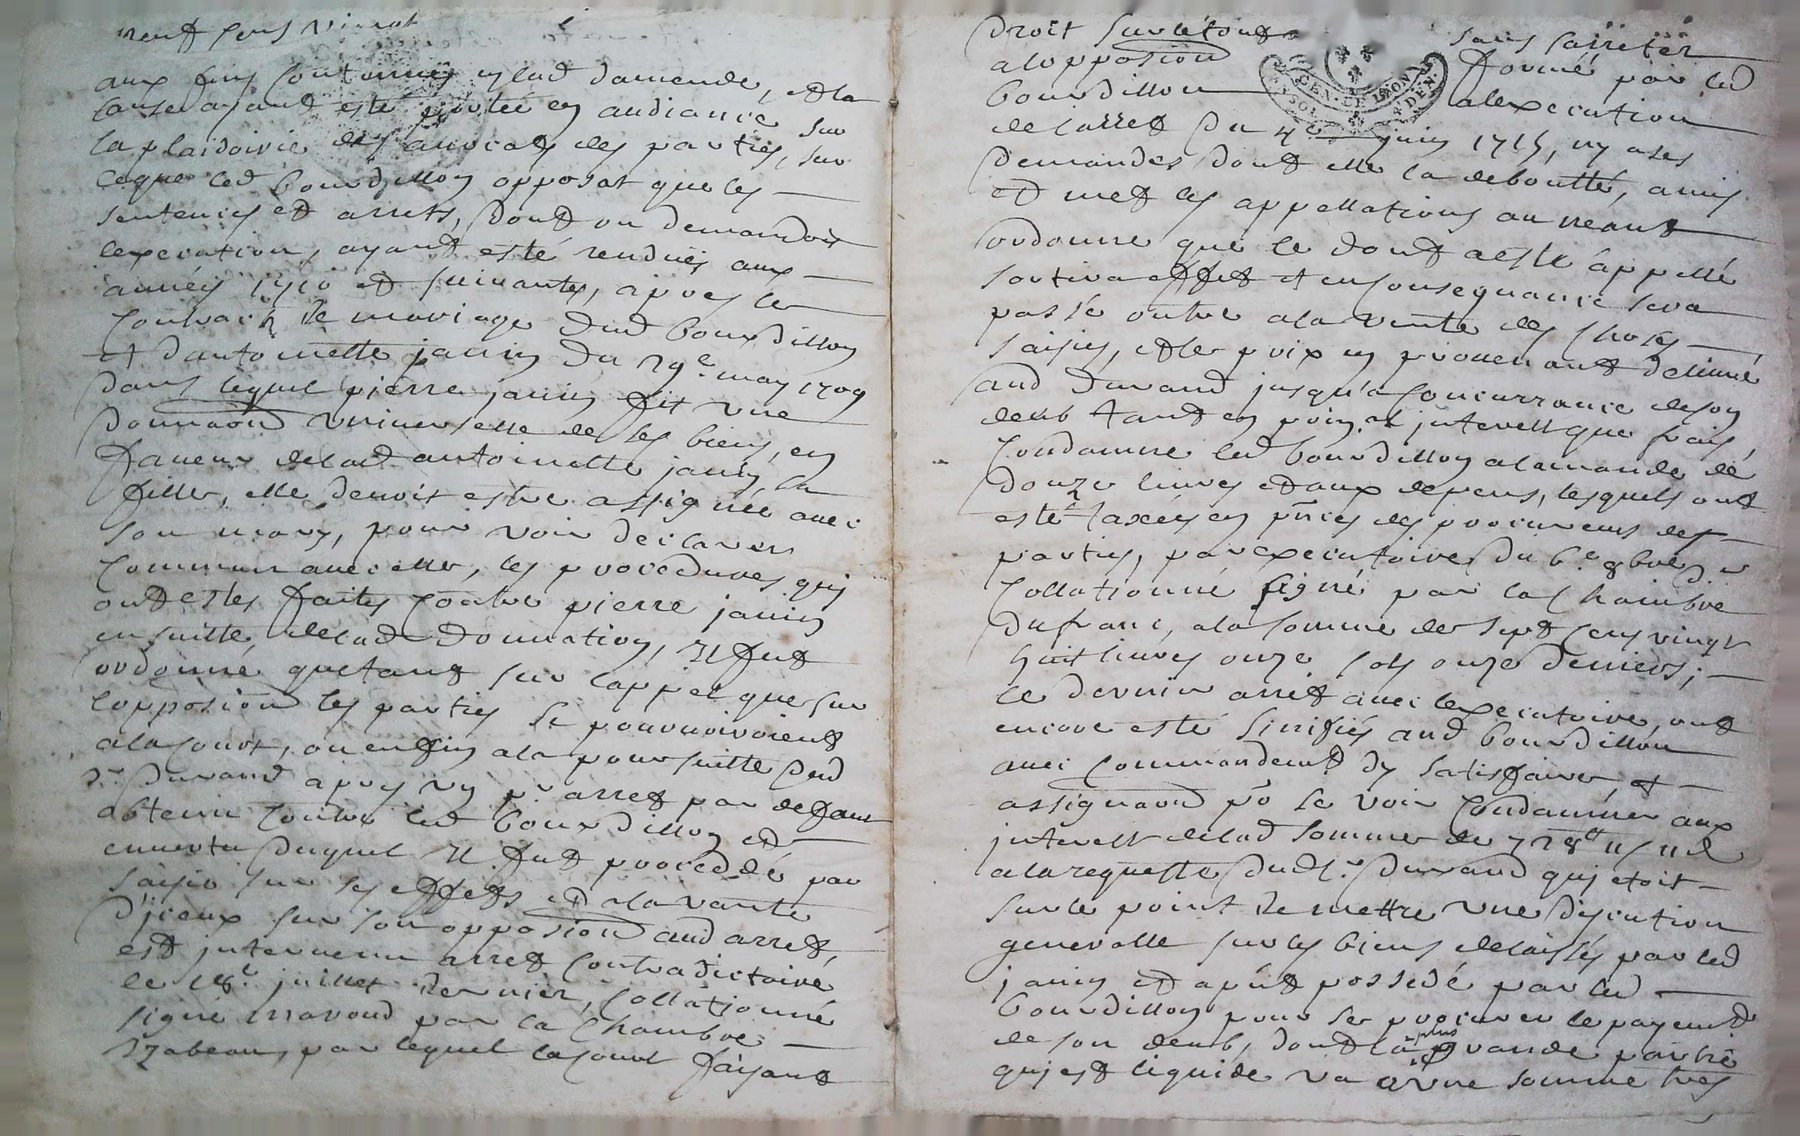 neuf cens vingt
aux fins contenues en lad demande, et la
cause ayant esté portée en audiance sur
la plaidoirie des advocats des parties, sur
ceque led Bourdillon opposat que les
sentences et arrets, dont on demandoit
lexecution, ayant esté rendues aux
années 1710 et suivantes, apres le
Contract de mariage dud Bourdillon
et dantoinette janin du 29e may 1709
dans lequel pierre janin fit une
donnaon universelle de ses biens, en
faveur delad antoinette janin sa
fille, elle devoit estre assignée avec
son mary, pour voir declarer
Commun avec elle, les procedures quy
ont estés faites Contre pierre janin
ensuitte delad donnation, Il fut
ordonné quetant sur lappel que sur
lopposion les parties se pourvoiroient
ala Court, ou enfin ala poursuitte dud
Sr Durand apres un pr arret par defaut
obtenu Contre led Bourdillon et
envertu duquel Il fut procédé par
saisie sur ses effets et ala vante
diceux sur son opposion aud arret,
est intervenu arret Contradictoire
le 18e juillet dernier, Collationné
signé par la Chambre
Izabeau, par lequel laCourt faisant
droit sur letout sans sarreter
alopposion formé par led
Bourdillon alexecution
de larret du 4e juin 1715, ny ases
demandes dont elle la deboutté, amis
et met les appellations au neant
ordonne que ce dont aesté appellé
sortira effet et en Consequance sera
passé outre ala vente des choses
saisies, et le prix en provenant delivré
aud Durand jusqu'a Concurrance deson
deub tant en prin.al interest que frais,
Condamne led Bourdillon alamande de
douze livres et aux depens, lesquels ont
esté taxés en pnces des procureurs des
parties, par executoire du 6e 8bre
Collationné signé par la Chambre
Dufranc, ala somme de sept cens vingt
huit livres onze sols onze deniers;
ce dernier arret avec lexecutoire, ont
encore esté sinifiés aud Bourdillon
avec Commandemt dy satisfaire, et
assignaon po se voir Condamner aux
interest delad somme de 728tt 11s 11d
ala requeste dud Sr Durand qui etoit
sur le point de mettre une discution
generalle sur les biens delaissés par led
janin et apnt possedé par led
Bourdillon pour se procurer le payemt
de son deub, dont la plus grande partie
quj est liquide va a une somme tres